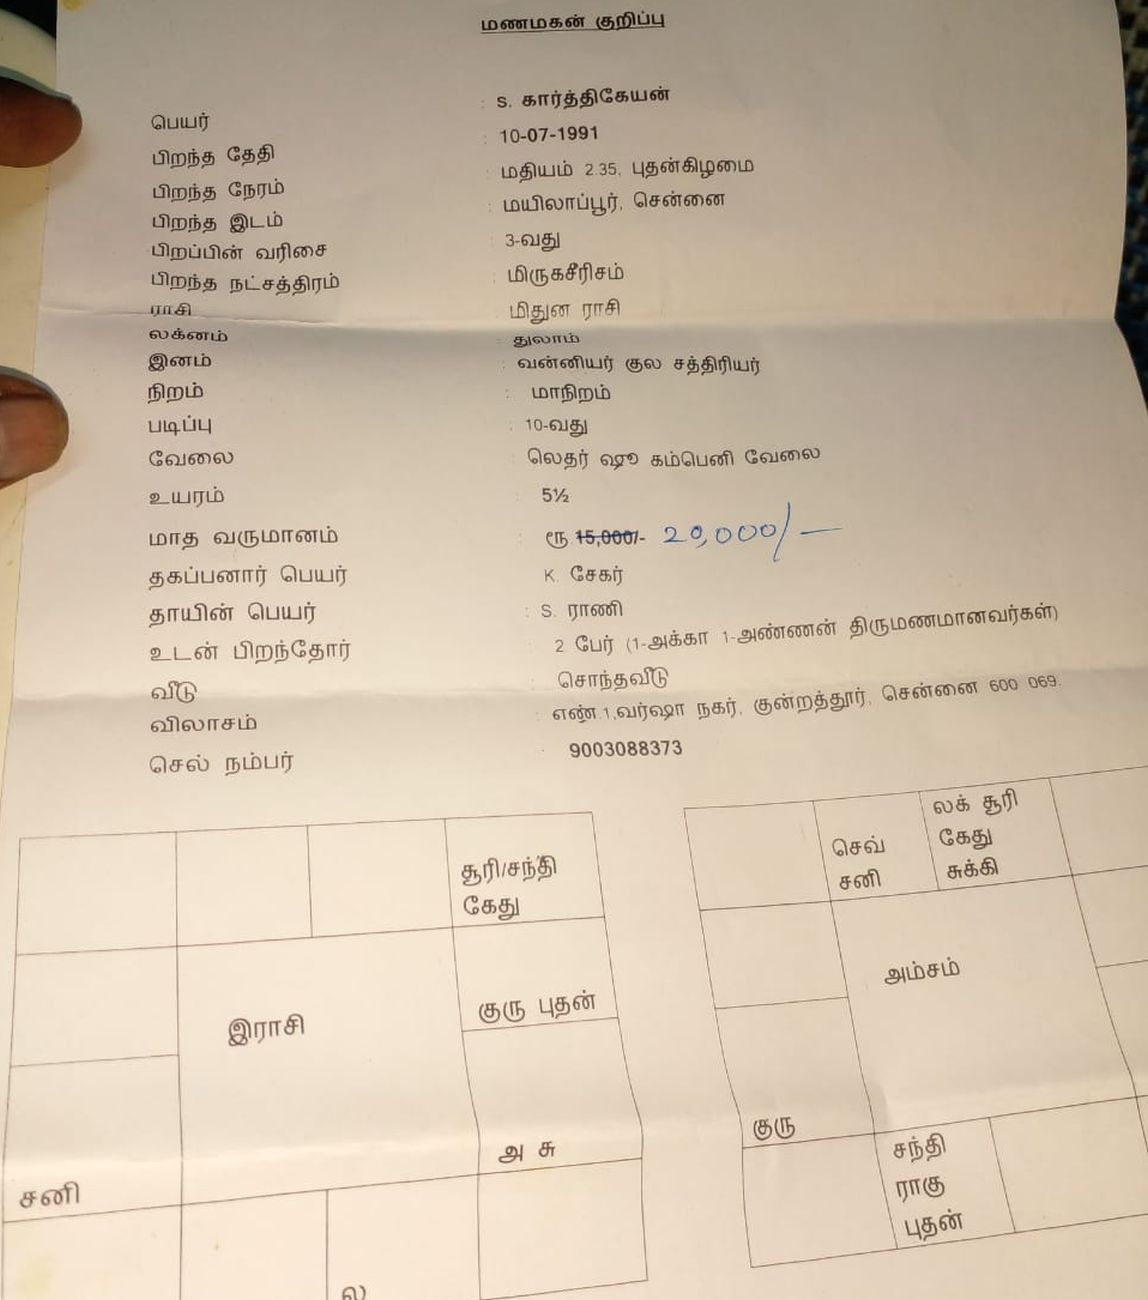 மணமகன் குறிப்பு
பெயர் : S. கார்த்திகேயன்
பிறந்த தேதி : 10-07-1991
பிறந்த நேரம் : மதியம் 2.35, புதன்கிழமை
பிறந்த இடம் : மயிலாப்பூர், சென்னை
பிறப்பின் வரிசை : 3-வது
பிறந்த நட்சத்திரம் : மிருகசீரிசம்
ராசி : மிதுன ராசி
லக்னம் : துலாம்
இனம் : வன்னியர் குல சத்திரியர்
நிறம் : மாநிறம்
படிப்பு : 10-வது
வேலை : லெதர் ஷூ கம்பெனி வேலை
உயரம் : 5½
மாத வருமானம் : ரூ 15,000/- 20,000/-
தகப்பனார் பெயர் : K. சேகர்
தாயின் பெயர் : S. ராணி
உடன் பிறந்தோர் : 2 பேர் (1-அக்கா 1-அண்ணன் திருமணமானவர்கள்)
வீடு : சொந்தவீடு
விலாசம் : எண்.1,வர்ஷா நகர், குன்றத்தூர், சென்னை 600 069.
செல் நம்பர் : 9003088373
சூரி/சந்தி
கேது
குரு புதன்
இராசி
அ சு
சனி
ல
செவ்
சனி
லக் சூரி
கேது
சுக்கி
அம்சம்
குரு
சந்தி
ராகு
புதன்